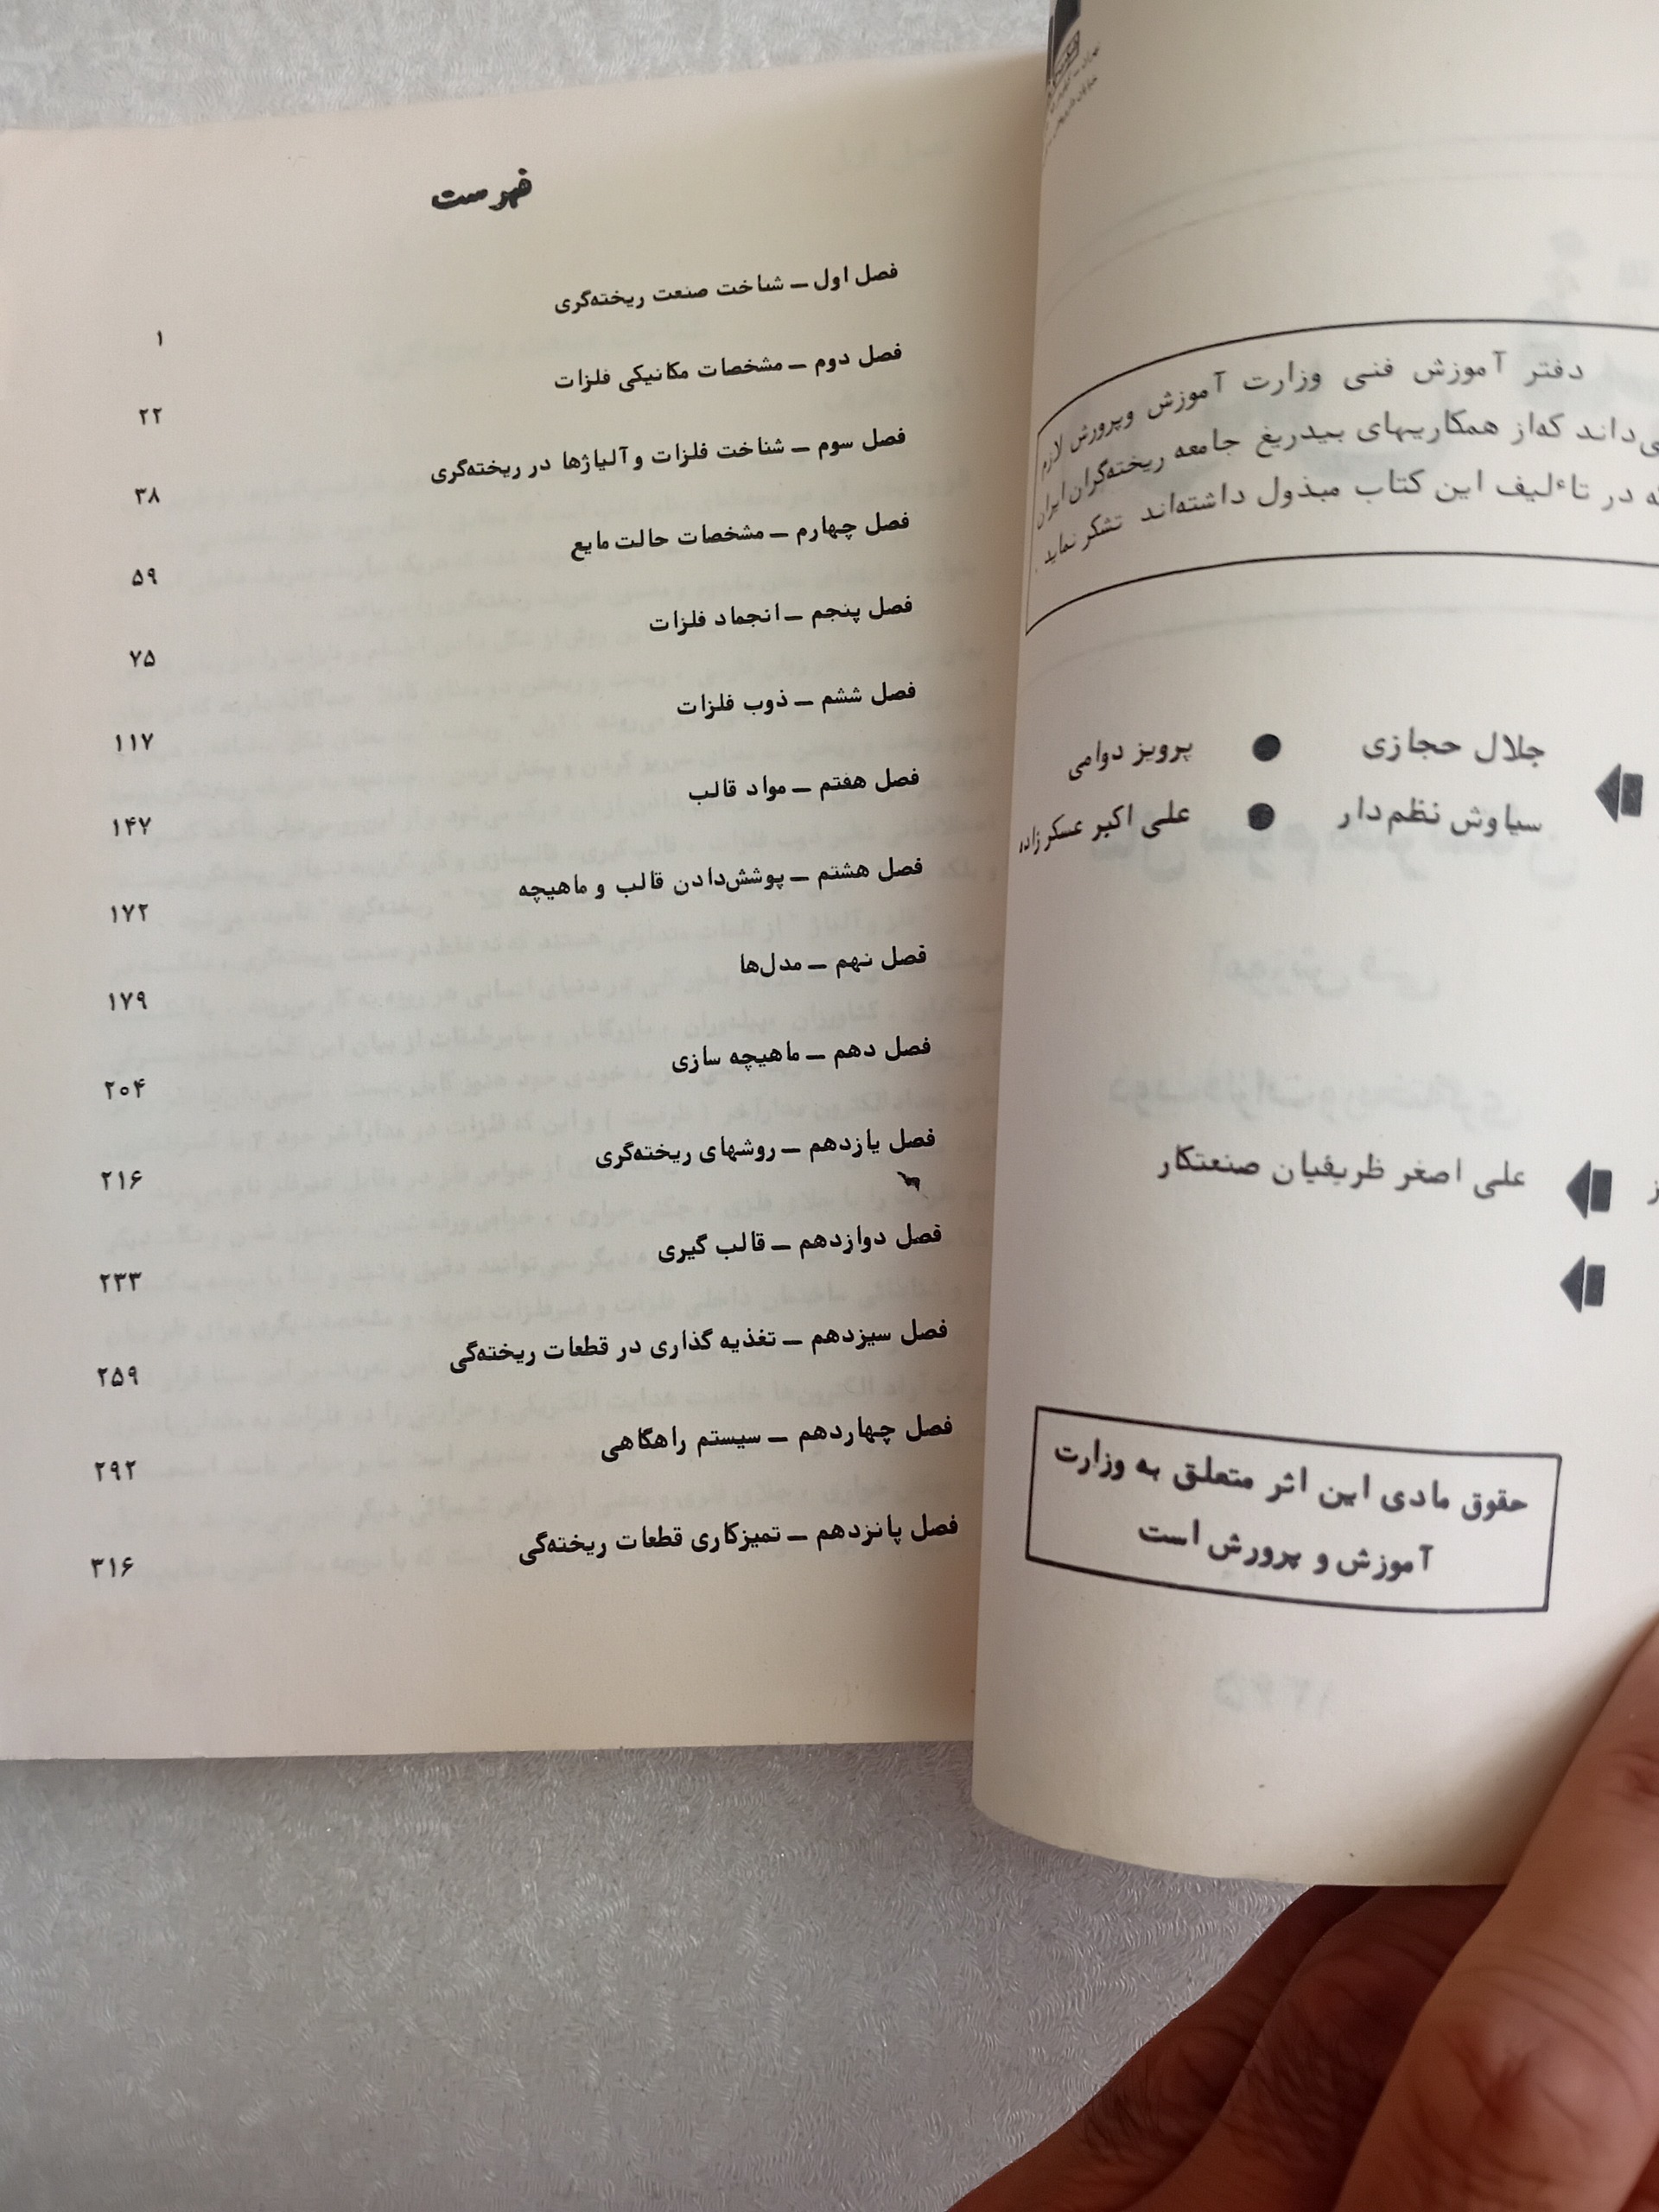 دفتر آموزش فنی وزارت آموزش وپرورش لازم
می‌داند که‌از همکاریهای بیدریغ جامعه ریخته‌گران ایران
که در تاءلیف این کتاب مبذول داشته‌اند تشکر نماید .
جلال حجازی ● پرویز دوامی
سیاوش نظم‌دار ● علی اکبر عسکرزاده
علی اصغر ظریفیان صنعتکار
حقوق مادی این اثر متعلق به وزارت
آموزش و پرورش است
فهرست
فصل اول ــ شناخت صنعت ریخته‌گری ۱
فصل دوم ــ مشخصات مکانیکی فلزات ۲۲
فصل سوم ــ شناخت فلزات و آلیاژها در ریخته‌گری ۳۸
فصل چهارم ــ مشخصات حالت مایع ۵۹
فصل پنجم ــ انجماد فلزات ۷۵
فصل ششم ــ ذوب فلزات ۱۱۷
فصل هفتم ــ مواد قالب ۱۴۷
فصل هشتم ــ پوشش‌دادن قالب و ماهیچه ۱۷۲
فصل نهم ــ مدل‌ها ۱۷۹
فصل دهم ــ ماهیچه سازی ۲۰۴
فصل یازدهم ــ روشهای ریخته‌گری ۲۱۶
فصل دوازدهم ــ قالب گیری ۲۳۳
فصل سیزدهم ــ تغذیه گذاری در قطعات ریخته‌گی ۲۵۹
فصل چهاردهم ــ سیستم راهگاهی ۲۹۲
فصل پانزدهم ــ تمیزکاری قطعات ریخته‌گی ۳۱۶